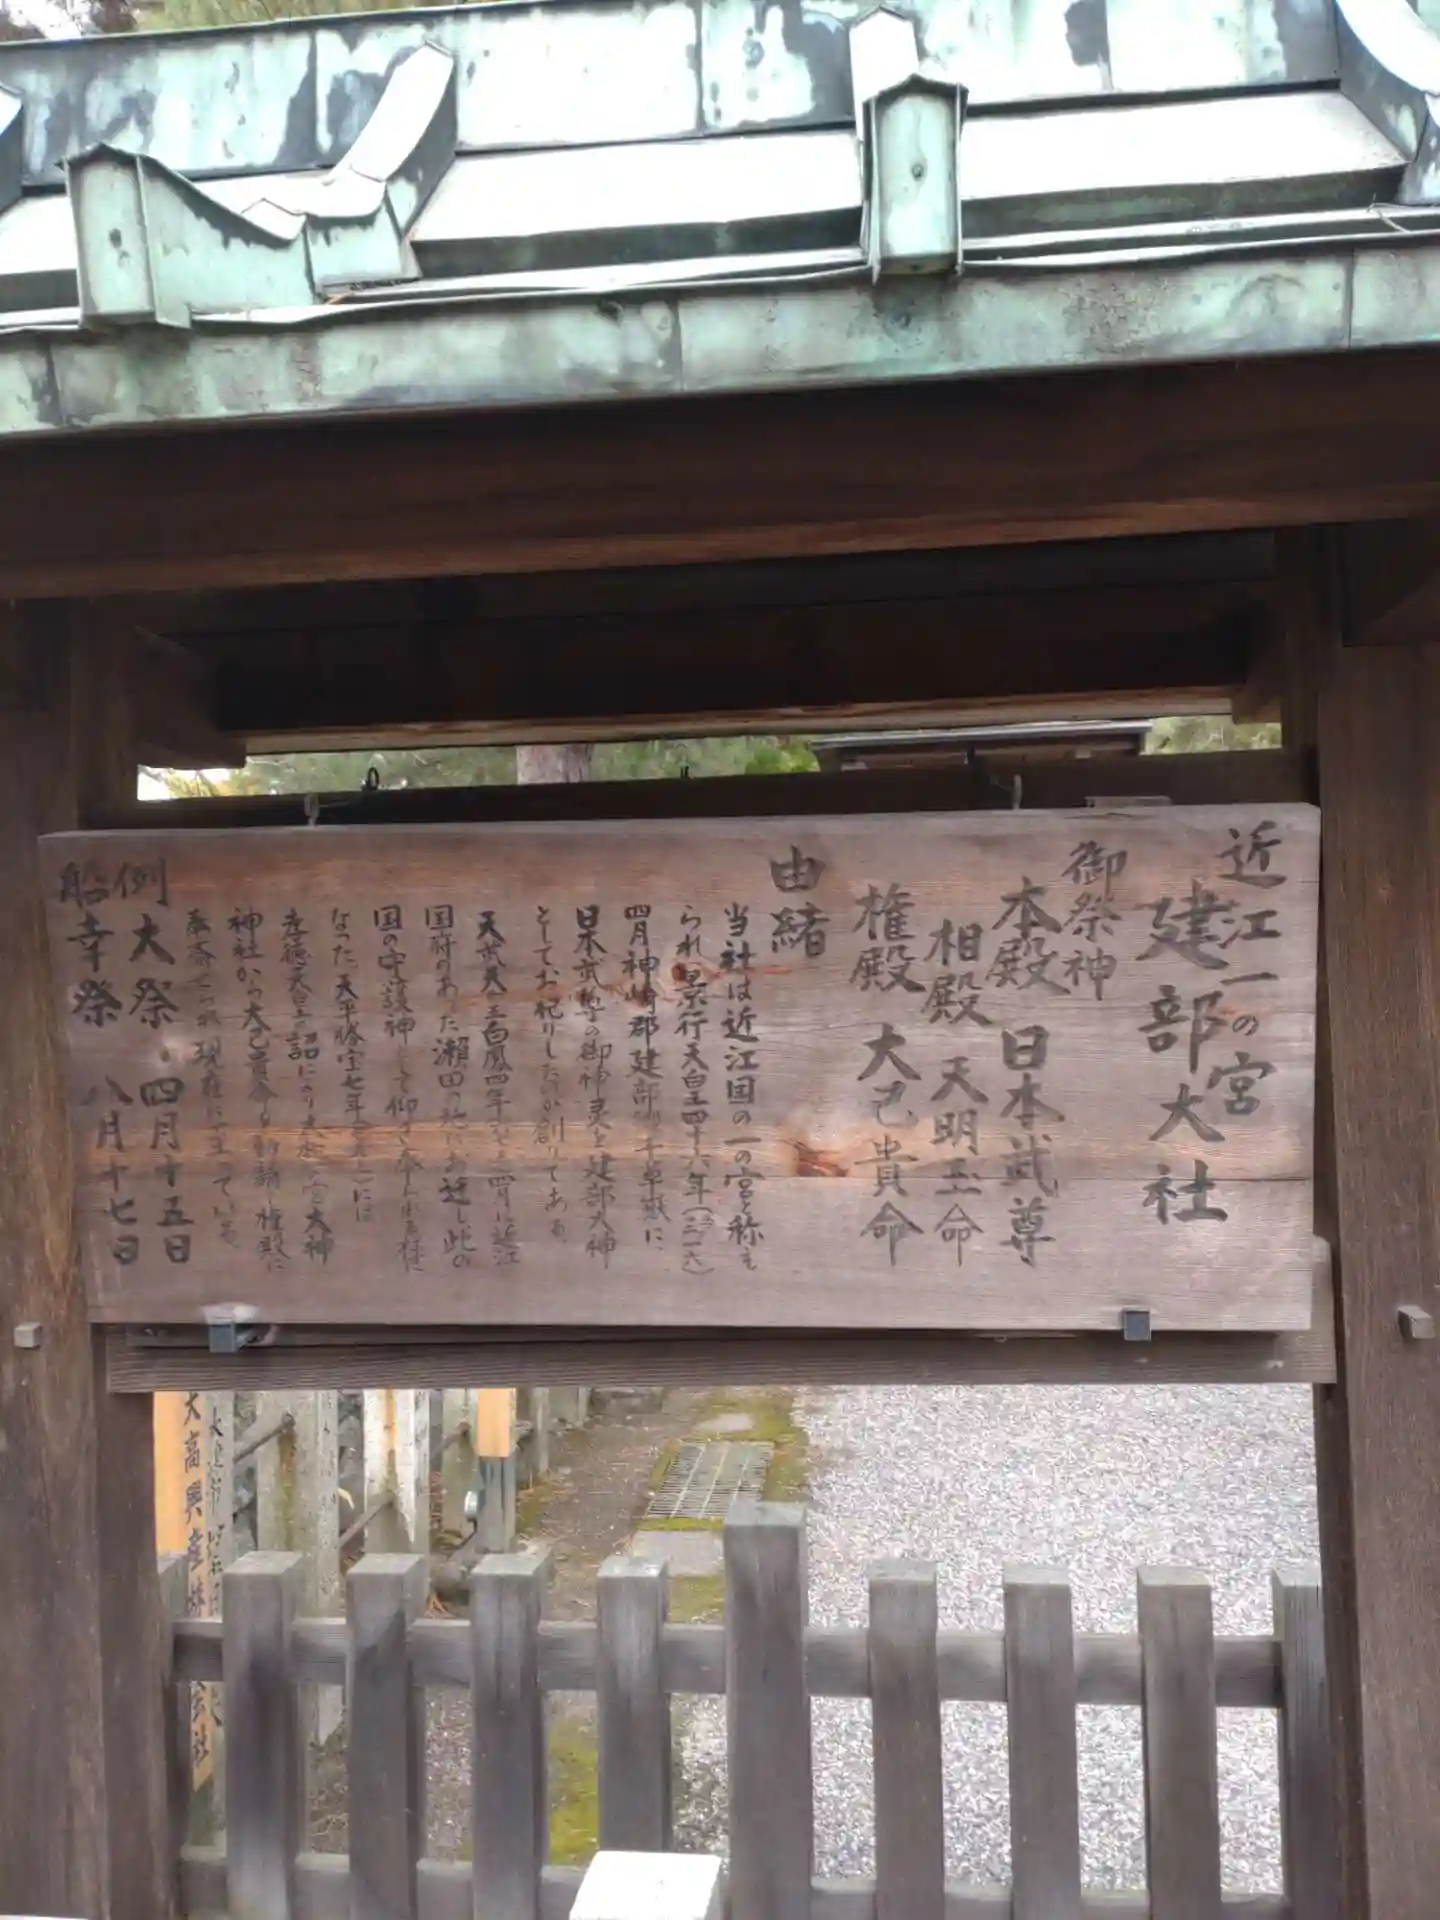 近江一の宮
建部大社
御祭神
本殿 日本武尊
相殿 天明玉命
権殿 大己貴命
由緒
当社は近江国の一の宮と称え
られ、景行天皇四十六年(三一六)
四月神崎郡建部郷千草嶽に、
日本武尊の御神灵を建部大神
としてお祀りしたのが創りである。
天武天皇白鳳四年 四月に近江
国府のあった瀬田の地にお迁し此の
国の守護神として仰ぎ奉られる様に
なった。天平勝宝七年 には
孝徳天皇の詔により 宮大神
神社から大己貴命を勧請し権殿に
奉斎せられ現在に至っている。
例大祭 四月十五日
船幸祭 八月十七日
大高興産株
会社